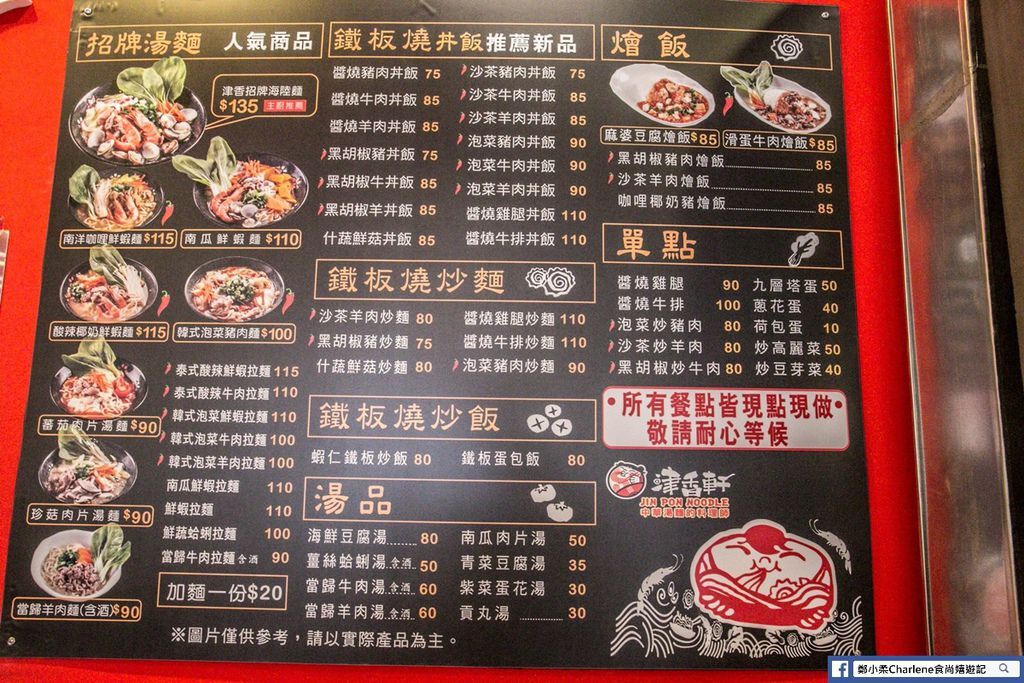 招牌湯麵 人氣商品
津香招牌海陸麵
$135 主廚推薦
南洋咖哩鮮蝦麵 $115
南瓜鮮蝦麵 $110
酸辣椰奶鮮蝦麵 $115
韓式泡菜豬肉麵 $100
蕃茄肉片湯麵 $90
珍菇肉片湯麵 $90
當歸羊肉麵(含酒) $90
泰式酸辣鮮蝦拉麵 115
泰式酸辣牛肉拉麵 110
韓式泡菜鮮蝦拉麵 110
韓式泡菜牛肉拉麵 100
韓式泡菜羊肉拉麵 100
南瓜鮮蝦拉麵 110
鮮蝦拉麵 110
鮮蔬蛤蜊拉麵 100
當歸牛肉拉麵 含酒 90
加麵一份$20
※圖片僅供參考，請以實際產品為主。
鐵板燒丼飯推薦新品
醬燒豬肉丼飯 75
醬燒牛肉丼飯 85
醬燒羊肉丼飯 85
黑胡椒豬丼飯 75
黑胡椒牛丼飯 85
黑胡椒羊丼飯 85
什蔬鮮菇丼飯 85
沙茶豬肉丼飯 75
沙茶牛肉丼飯 85
沙茶羊肉丼飯 85
泡菜豬肉丼飯 90
泡菜牛肉丼飯 90
泡菜羊肉丼飯 90
醬燒雞腿丼飯 110
醬燒牛排丼飯 110
鐵板燒炒麵
沙茶羊肉炒麵 80
黑胡椒豬炒麵 75
什蔬鮮菇炒麵 80
醬燒雞腿炒麵 110
醬燒牛排炒麵 110
泡菜豬肉炒麵 90
鐵板燒炒飯
蝦仁鐵板炒飯 80
鐵板蛋包飯 80
湯品
海鮮豆腐湯 80
薑絲蛤蜊湯 含酒 50
當歸牛肉湯 含酒 60
當歸羊肉湯 含酒 60
南瓜肉片湯 50
青菜豆腐湯 35
紫菜蛋花湯 30
貢丸湯 30
燴飯
麻婆豆腐燴飯 $85
滑蛋牛肉燴飯 $85
黑胡椒豬肉燴飯 85
沙茶羊肉燴飯 85
咖哩椰奶豬燴飯 85
單點
醬燒雞腿 90
醬燒牛排 100
泡菜炒豬肉 80
沙茶炒羊肉 80
黑胡椒炒牛肉 80
九層塔蛋 50
蔥花蛋 40
荷包蛋 10
炒高麗菜 50
炒豆芽菜 40
所有餐點皆現點現做
敬請耐心等候
津香軒
JIN PON NOODLE
中華湯麵的料理師
鄭小柔Charlene食尚嬉遊記